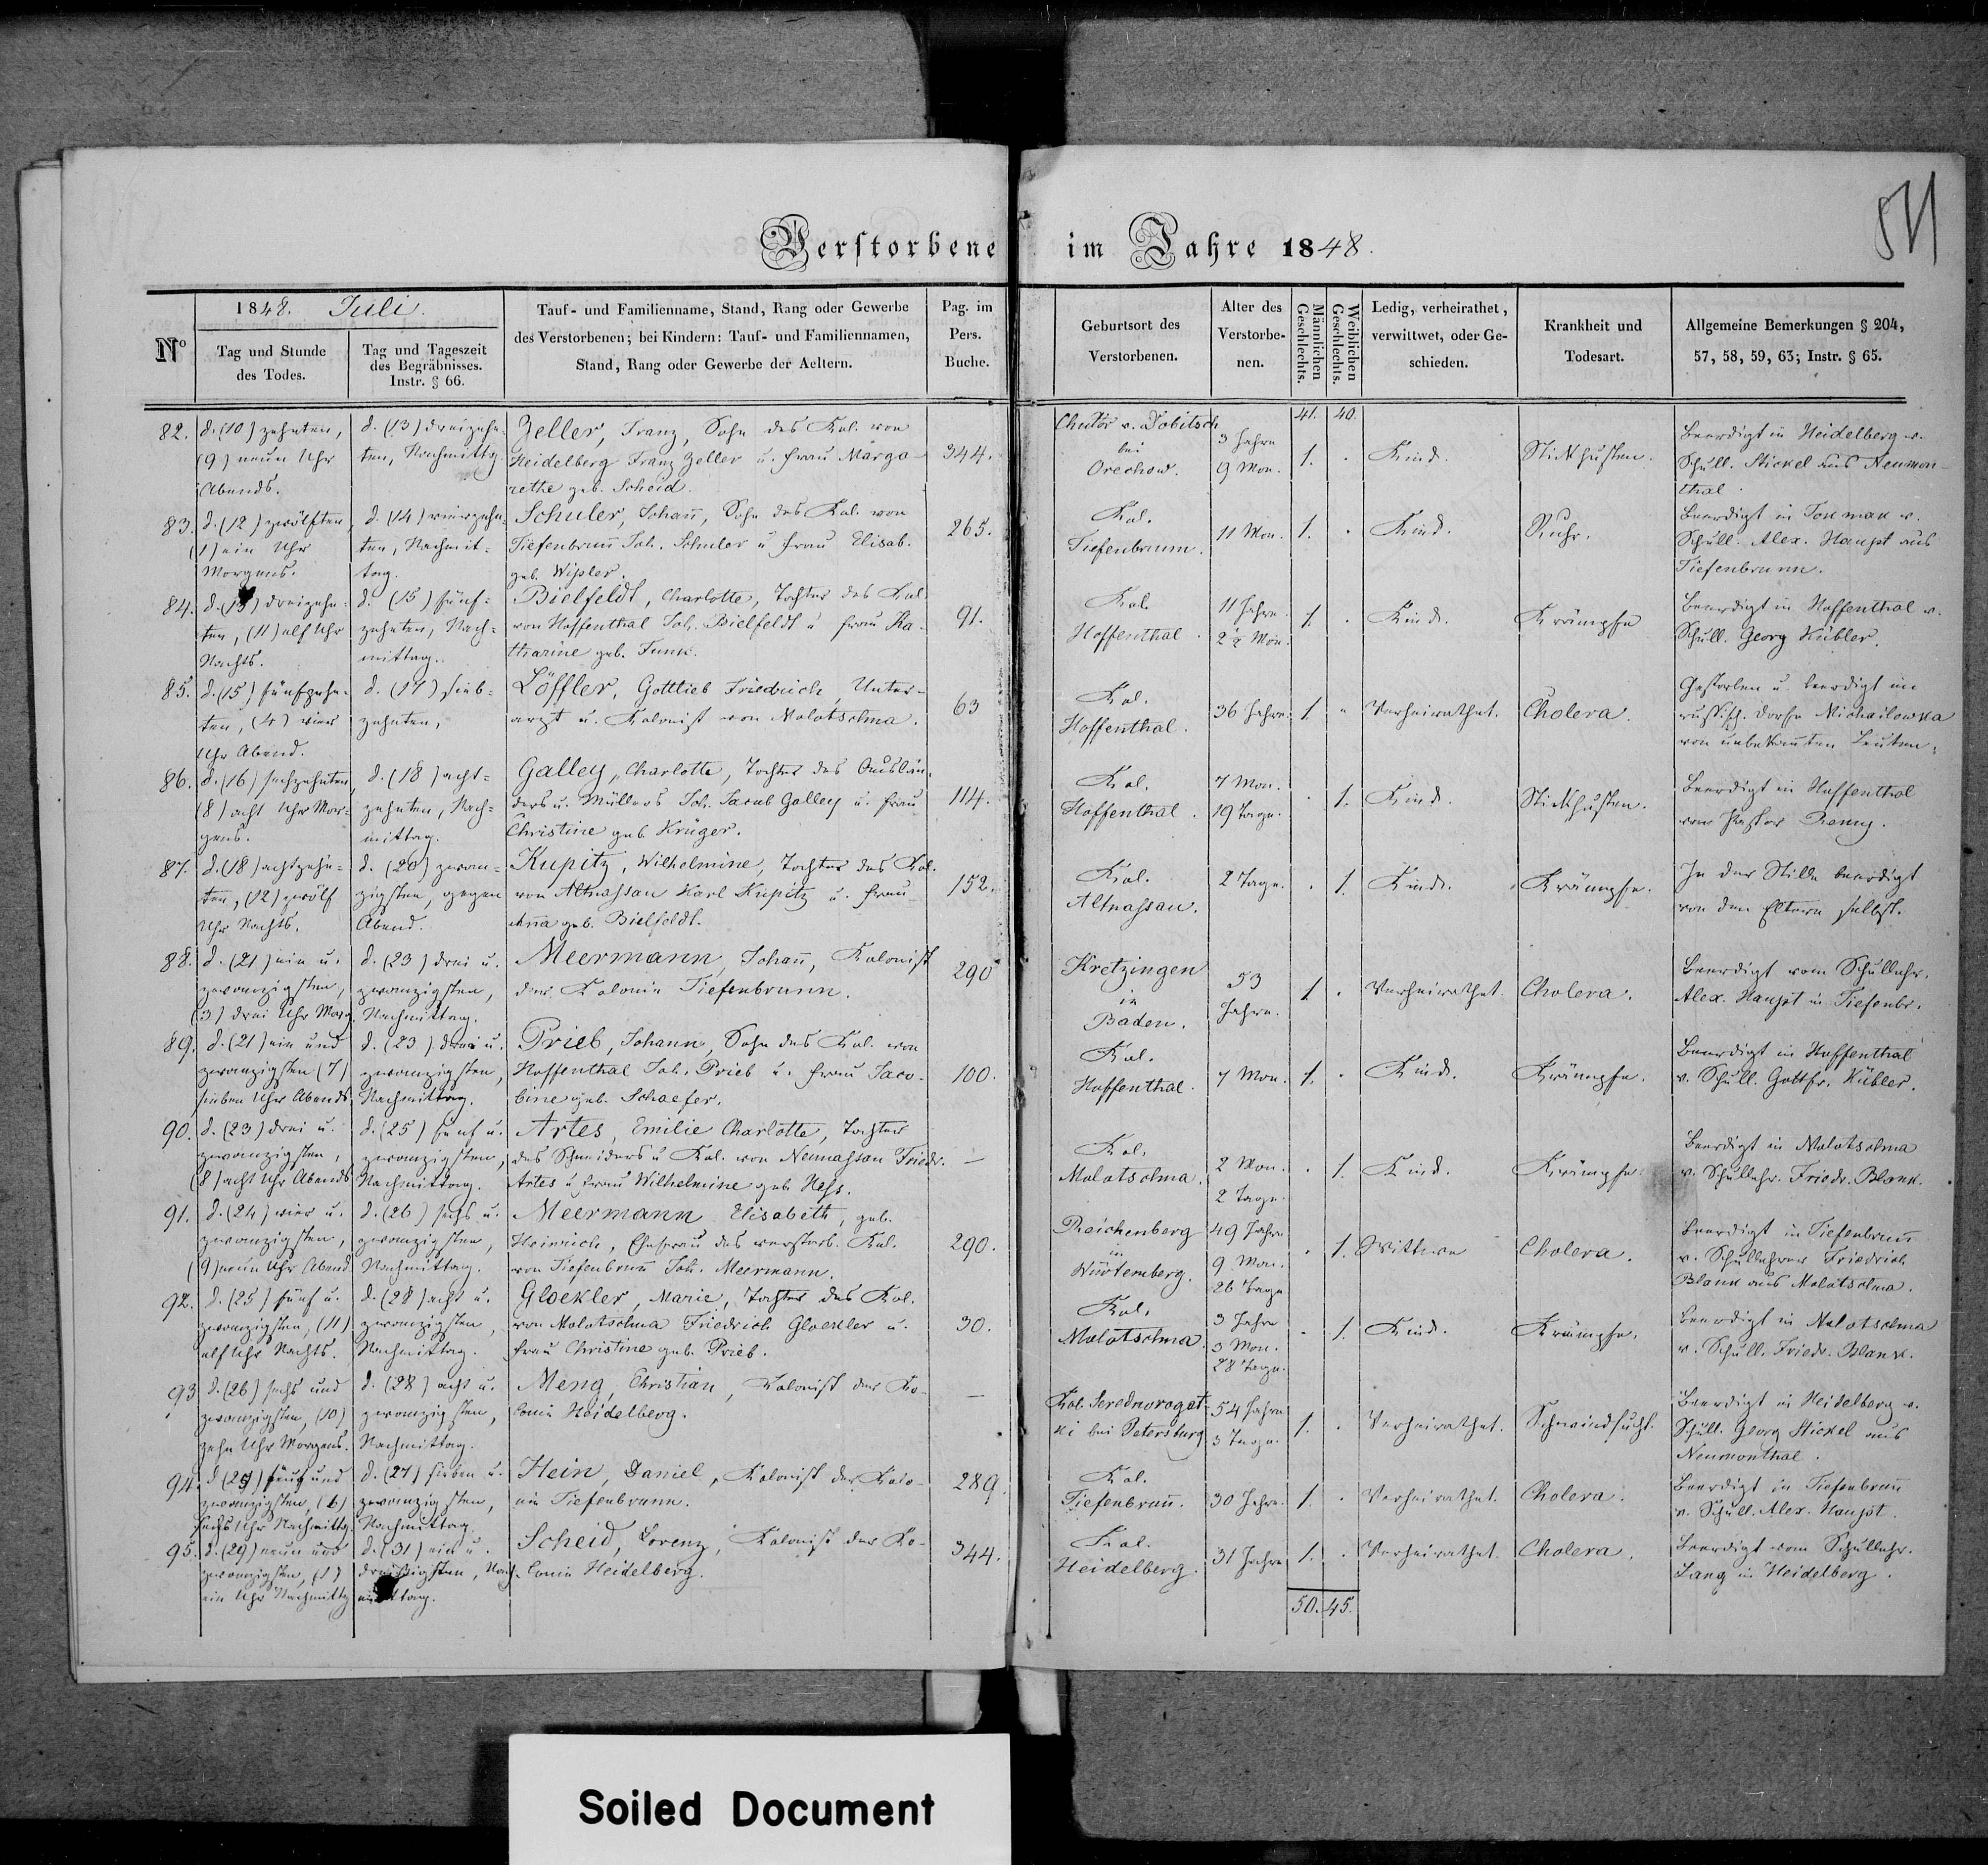 Verstorbene im Jahre 1848.
511
Nº
1848. Juli.
Tag und Stunde des Todes.
Tag und Tageszeit des Begräbnisses. Instr. § 66.
Tauf- und Familienname, Stand, Rang oder Gewerbe
des Verstorbenen; bei Kindern: Tauf- und Familiennamen,
Stand, Rang oder Gewerbe der Aeltern.
Pag. im Pers. Buche.
Geburtsort des Verstorbenen.
Alter des Verstorbenen.
Männlichen Geschlechts.
Weiblichen Geschlechts.
Ledig, verheirathet, verwittwet, oder Geschieden.
Krankheit und Todesart.
Allgemeine Bemerkungen § 204,
57, 58, 59, 63; Instr. § 65.
41. 40.
82. d. (10) zehnten, (9) neun Uhr Abends.
d. (13) dreizehnten, Nachmittg.
Zeller, Franz, Sohn des Kol. von
Heidelberg Franz Zeller u. Frau Marga-
rethe geb. Scheid.
344.
Chutor v. Dobitsch bei Orechow.
3 Jahre 9 Mon.
1.
Kind.
Stickhusten.
Beerdigt in Heidelberg v.
Schull. Stickel aus Neumon-
thal.
83. d. (12) zwölften, (1) ein Uhr Morgens.
d. (14) vierzehnten, Nachmittag.
Schuler, Johañ, Sohn des Kol. von
Tiefenbruñ Joh. Schuler u Frau Elisab.
geb. Wissler.
265.
Kol. Tiefenbrunn.
11 Mon.
1.
Kind.
Ruhr.
Beerdigt in Tokmak v.
Schull. Alex. Haupt aus
Tiefenbrunn.
84. d. (13) dreizehnten, (11) elf Uhr Nachts.
d. (15) fünfzehnten, Nachmittag.
Bielfeldt, Charlotte, Tochter des Kol.
von Hoffenthal Joh. Bielfeldt u Frau Ka-
tharine geb. Funk.
91.
Kol. Hoffenthal.
11 Jahre 2½ Mon.
1.
Kind.
Krämpfe
Beerdigt in Hoffenthal v.
Schull. Georg Kübler.
85. d. (15) fünfzehnten, (4) vier Uhr Abend.
d. (17) siebzehnten,
Löffler, Gottlieb Friedrich, Unter-
arzt u. Kolonist von Molotschna.
63
Kol. Hoffenthal.
36 Jahre.
1.
Verheirathet.
Cholera.
Gestorben u. beerdigt im
russisch. Dorfe Michailowka
von unbekañten Leuten.
86. d. (16) sechzehnten, (8) acht Uhr Morgens.
d. (18) achtzehnten, Nachmittag.
Galley, Charlotte, Tochter des Auslän-
ders u. Müllers Joh. Jacob Galley u. Frau
Christine geb Krüger.
114.
Kol. Hoffenthal.
7 Mon. 19 Tage.
1.
Kind.
Stickhusten.
Beerdigt in Hoffenthal
von Pastor Remy.
87. d. (18) achtzehnten, (12) zwölf Uhr Nachts.
d. (20) zwanzigsten, gegen Abend.
Kupitz, Wilhelmine, Tochter des Kol.
von Altnassau Karl Kupitz u. Frau
Aña geb. Bielfeldt.
152.
Kol. Altnassau.
2 Tage.
1.
Kind.
Krämpfe.
In der Stille beerdigt
von den Eltern selbst.
88. d. (21) ein u. zwanzigsten, (3) drei Uhr Morg.
d. (23) drei u. zwanzigsten, Nachmittag.
Meermann, Johañ, Kolonist
der Kolonie Tiefenbrunn.
290
Kretzingen in Baden.
53 Jahre.
1.
Verheirathet.
Cholera.
Beerdigt vom Schullehr.
Alex. Haupt in Tiefenbr.
89. d. (21) ein und zwanzigsten (7) sieben Uhr Abends
d. (23) drei u. zwanzigsten, Nachmittag.
Prieb, Johann, Sohn des Kol. von
Hoffenthal Joh. Prieb u. Frau Jaco-
bine geb. Schaefer.
100.
Kol. Hoffenthal.
7 Mon.
1.
Kind.
Krämpfe.
Beerdigt in Hoffenthal
v. Schull. Gottfr. Kübler.
90. d. (23) drei u. zwanzigsten, (8) acht Uhr Abends
d. (25) fünf u. zwanzigsten, Nachmittag.
Artes, Emilie Charlotte, Tochter
des Schneiders u Kol. von Neunassau Friedr.
Artes u Frau Wilhelmine geb Hess.
—
Kol. Molotschna.
2 Mon. 2 Tage.
1.
Kind.
Krämpfe
Beerdigt in Molotschna
v. Schullehr. Friedr. Blank.
91. d. (24) vier u. zwanzigsten, (9) neun Uhr Abend
d. (26) sechs u. zwanzigsten, Nachmittag.
Meermann Elisabeth, geb.
Heinrich, Ehefrau des verstorb. Kol.
von Tiefenbruñ Joh. Meermann.
290.
Reichenberg in Würtemberg.
49 Jahre 9 Mon. 26 Tage
1.
Wittwe
Cholera.
Beerdigt in Tiefenbruñ
v. Schullehrer Friedrich
Blank aus Molotschna.
92. d. (25) fünf u. zwanzigsten, (11) elf Uhr Nachts.
d. (28) acht u. zwanzigsten, Nachmittag.
Gloekler, Marie, Tochter des Kol.
von Molotschna Friedrich Gloekler u.
Frau Christine geb. Prieb.
30.
Kol. Molotschna.
3 Jahre 3 Mon. 28 Tage.
1.
Kind.
Krämpfe.
Beerdigt in Molotschna
v. Schull. Friedr. Blank.
93 d. (26) sechs und zwanzigsten, (10) zehn Uhr Morgens.
d. (28) acht u. zwanzigsten, Nachmittag.
Meng, Christian, Kolonist der Ko-
lonie Heidelberg.
—
Kol. Serednorogat-
ki bei Petersburg
54 Jahre 3 Tage.
1.
Verheirathet.
Schwindsucht.
Beerdigt in Heidelberg v.
Schull. Georg Stickel aus
Neumonthal.
94. d (25) fünf und zwanzigsten, (6) sechs Uhr Nachmittg.
d. (27) sieben u. zwanzigsten, Nachmittag.
Hein, Daniel, Kolonist der Kolo-
nie Tiefenbrunn.
289.
Kol. Tiefenbruñ.
30 Jahre.
1.
Verheirathet.
Cholera.
Beerdigt in Tiefenbruñ
v. Schull. Alex. Haupt.
95. d. (29) neun und zwanzigsten, (1) ein Uhr Nachmittg
d. (31) ein u. dreißigsten, Nachmittag.
Scheid, Lorenz, Kolonist der Ko-
lonie Heidelberg.
344.
Kol. Heidelberg.
31 Jahre
1.
Verheirathet.
Cholera.
Beerdigt vom Schullehr.
Lang in Heidelberg.
50. 45.
Soiled Document